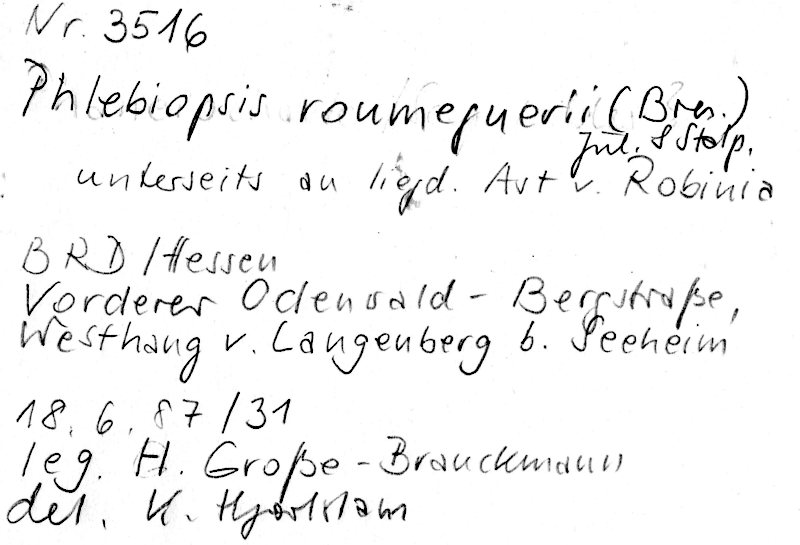 Nr. 3516
Phlebiopsis roumeguerii (Bres.)
Jül. & Stalp.
unterseits an liegd. Ast v. Robinia
BRD/Hessen
Vorderer Odenwald - Bergstraße,
Westhang v. Langenberg b. Seeheim
18. 6. 87/31
leg. H. Große-Brauckmann
det. K. Hjortstam